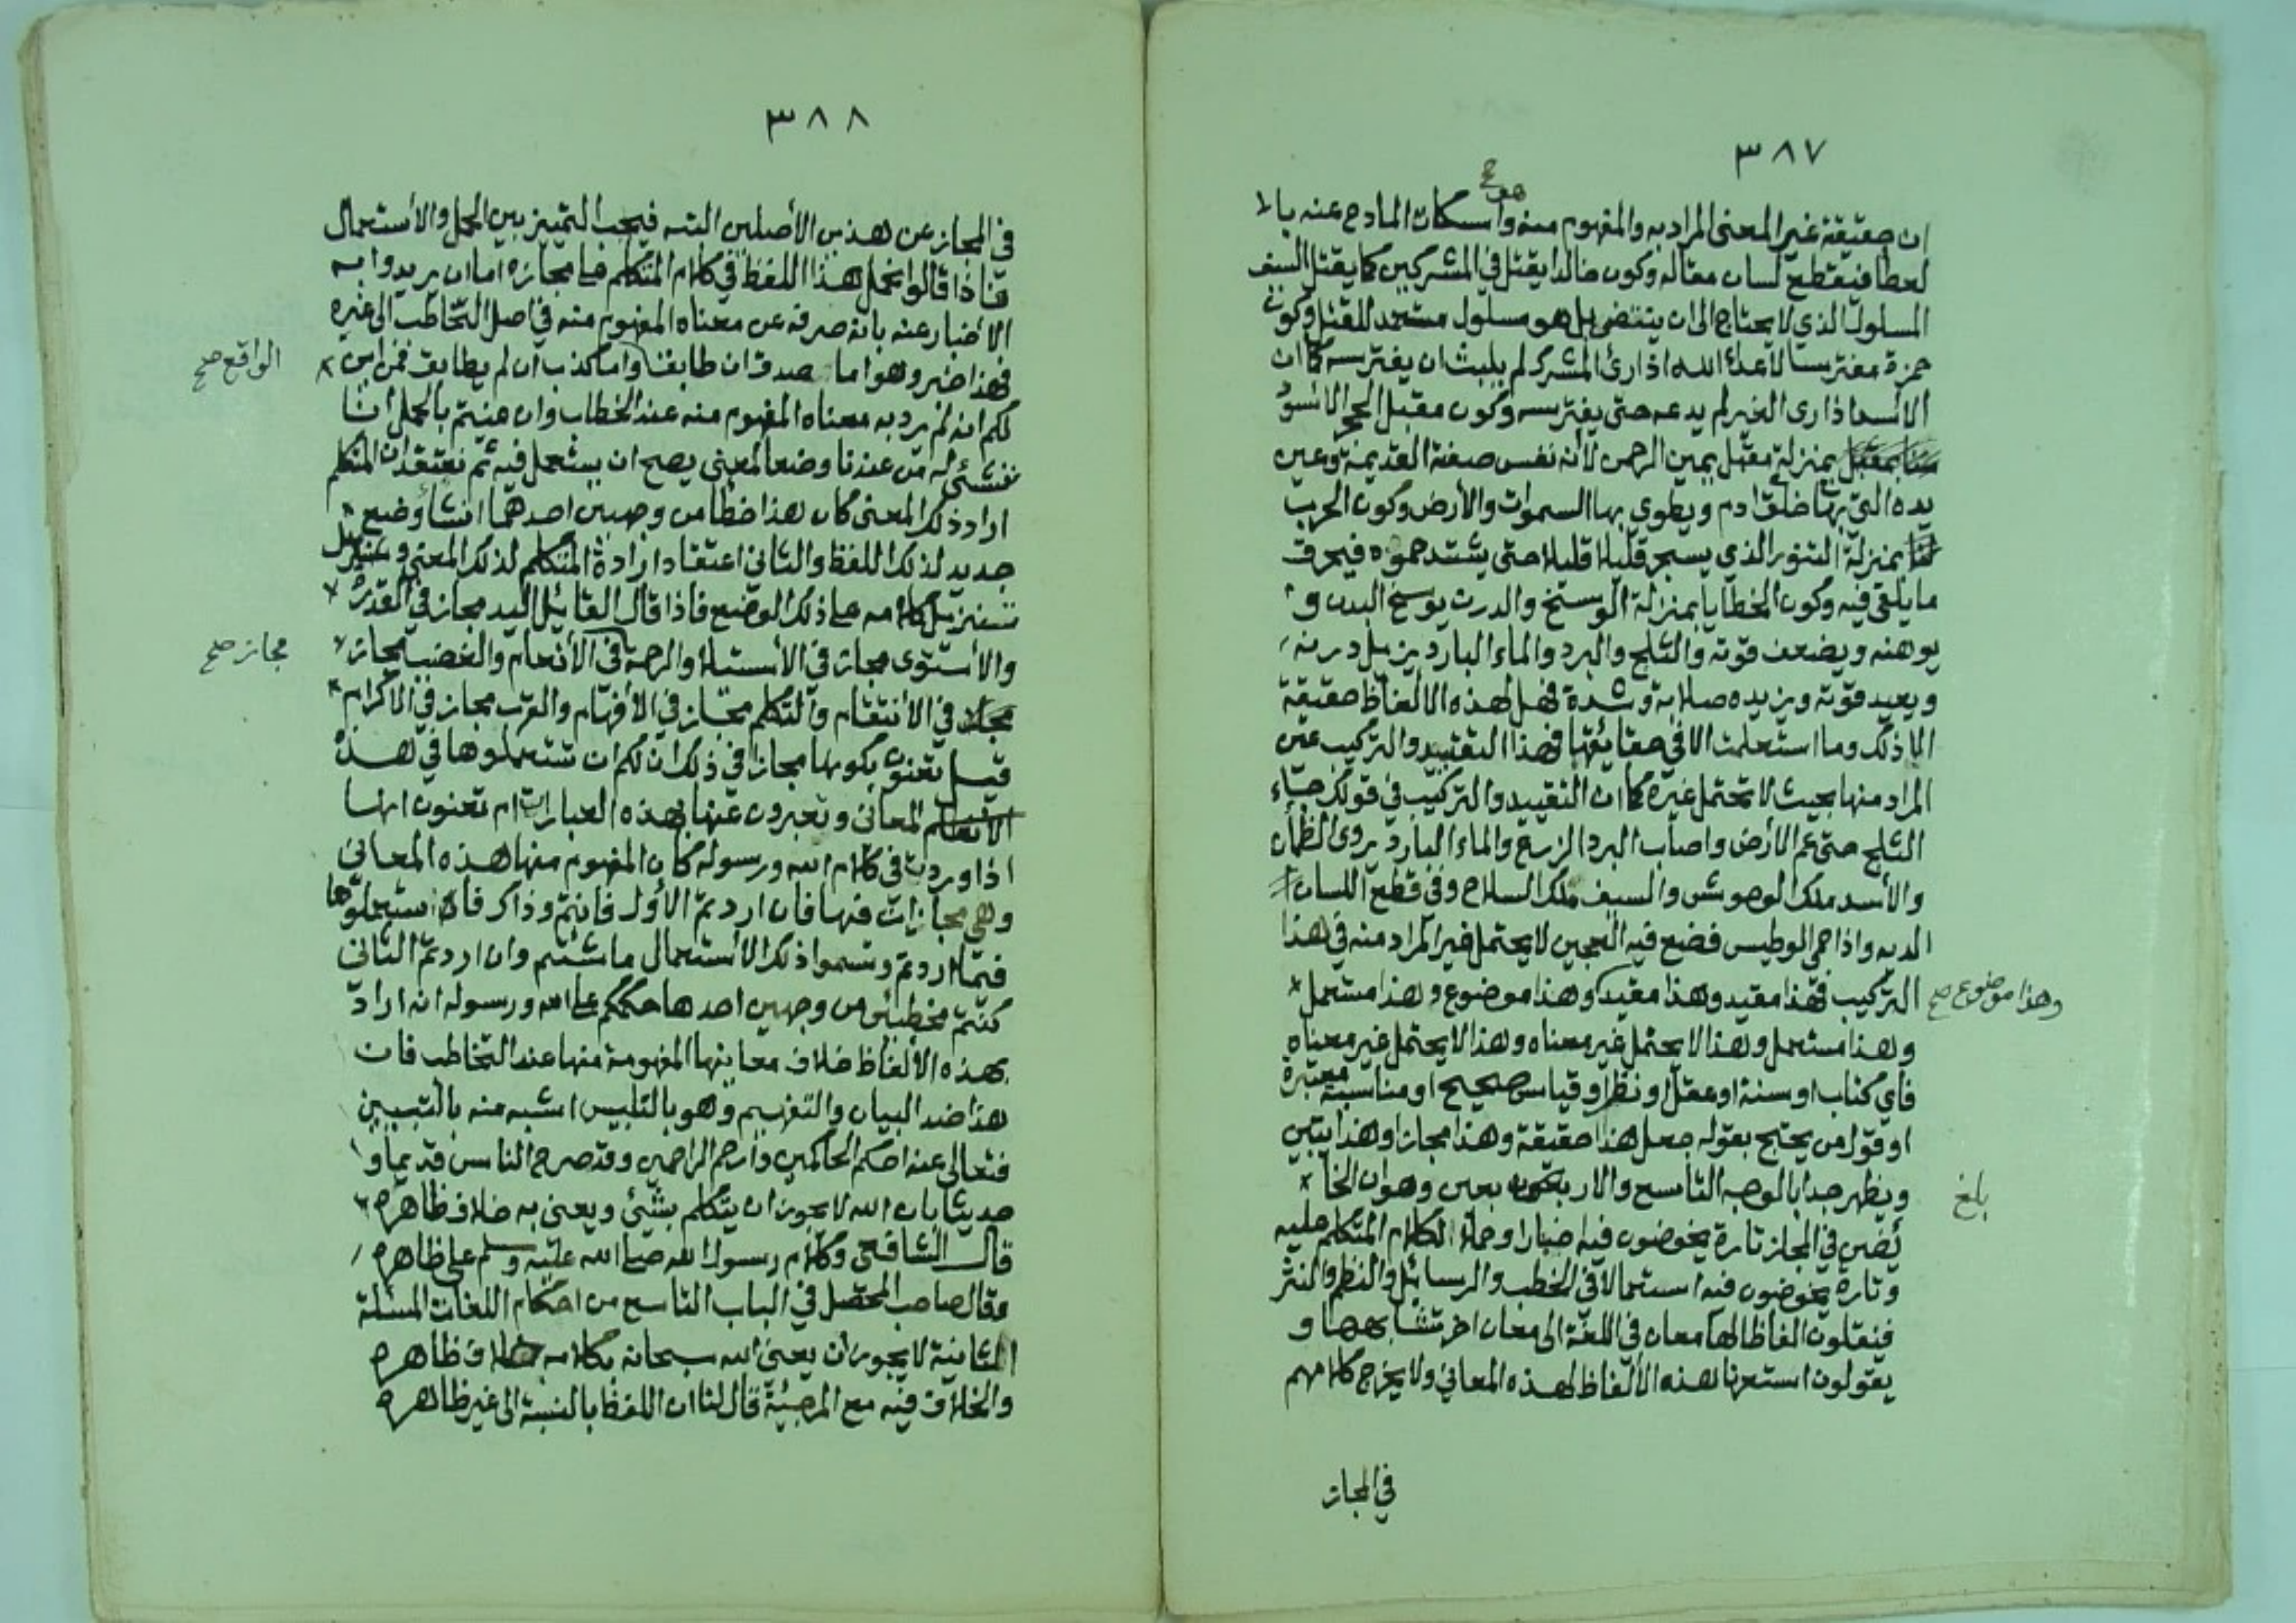 ٣٨٧
ان حقيقة غير المعنى المراد به والمفهوم منه واسكات المادح عنه بالا
هو ح
لعطا فيقطع لسان مقاله وكون خالدا يقتل في المشركين كما يقتل السيف
المسلول الذي لا يحتاج الى ان ينتضى بل هو مسلول مستعد للقتل وكون
حمزة مفترسا لأعداء الله اذا رئ المشرك لم يلبث ان يفترسه كما ان
الأسد اذا رى الغير لم يدعه حتى يفترسه وكون مقبل الحجر الأسود
بمنزلة مقبل يمين الرحمن لا أنه نفس صفة القديمة وعين
يده التي بها خلق ادم ويطوي بها السموات والأرض وكون الحرب
بمنزلة التنور الذي يسجر قليلا قليلا حتى يشتد حموه فيحرق
ما يلقى فيه وكون الخطايا بمنزلة الوسخ والدرن يوسخ البدن و
يوهنه ويضعف قوته والثلج والبرد والماء البارد يزيل درنه
ويعيد قوته ويزيده صلابة وشدة فهل لهذه الالفاظ حقيقة
الا ذلك وما استعلمت الا في حقائقها فهذا التقييد والتركيب عين
المراد منها بحيث لا تحتمل غيره كما ان التقييد والتركيب في قولك جاء
الثلج حتى عم الأرض واصاب البرد الزرع والماء البارد يروى الظمأن
والأسد ملك الوحوش والسيف ملك السلاح وفي قطع اللسان
الديه واذا حمي الوطيس فضع فيه العجين لا يحتمل غير المراد منه في هذا
التركيب فهذا مقيد وهذا مقيد وهذا موضوع وهذا مستعمل
وهذا موضوع صح
وهذا مستعمل وهذا لا يحتمل غير معناه وهذا لا يحتمل غير معناه
فاي كتاب او سنة او عقل او نظر او قياس صحيح او مناسبة معتبرة
او قول من يحتج بقوله جعل هذا حقيقة وهذا مجازا وهذا يتبين
ويظهر جدا بالوجه التاسع والاربعون بعين وهو ان الخا
بلغ
ئضين في المجاز تارة يخوضون فيه اخبارا وحملا لكلام المتكلم عليه
وتارة يخوضون فيه استعمالا في الخطب والرسائل والنظم والنثر
فينقلون الفاظا لها معان في اللغة الى معان اخر تشابهها و
يقولون استعرنا هذه الألفاظ لهذه المعاني ولا يخرج كلامهم
في المجاز
٣٨٨
في المجاز عن هذين الأصلين البته فيجب التمييز بين الحمل والاستعمال
فاذا قالوا نحمل هذا اللفظ في كلام المتكلم على مجازه اما ان يريدوا به
الاخبار عنه بانه صرفه عن معناه المفهوم منه في اصل التخاطب الى غيره
فهذا خبر وهو اما صدق ان طابق واما كذب ان لم يطابق فمن اين
الواقع صح
لكم انه لم يرد به معناه المفهوم منه عند الخطاب وان عنيتم بالحمل انا
ننشئ له من عندنا وضعا لمعنى يصح ان يستعمل فيه ثم نعتقد ان المتكلم
اراد ذلك المعنى كان هذا خطا من وجهين احدهما انشأ وضع
جديد لذلك اللفظ والثاني اعتقاد ارادة المتكلم لذلك المعنى وتنزيل
تنزيل كلامه على ذلك الوضع فاذا قال القائل اليد مجاز في القدرة
والاستوى مجاز في الاستيلاء والرحمة في الأنعام والغضب مجاز
مجاز صح
في الانتقام والتكلم مجاز في الافهام والقرب مجاز في الاكرام
قيل تعنون بكونها مجازا في ذلك ان لكم ان تستعملوها في هذه
المعاني وتعبرون عنها بهذه العبارات ام تعنون انها
اذا وردت في كلام الله ورسوله كان المفهوم منها هذه المعاني
وهي مجازات فيها فان اردتم الأول فانتم وذاك فاستعملوها
فيما اردتم وتسموا ذلك الاستعمال ما شئتم وان اردتم الثاني
كنتم مخطئين من وجهين احدها حكمكم على الله ورسوله انه اراد
بهذه الألفاظ خلاف معانيها المفهومة منها عند التخاطب فان
هذا ضد البيان والتفهيم وهو بالتلبيس اشبه منه بالتبيين
فتعالى عنه احكم الحاكمين وارحم الراحمين وقد صرح الناس قديما و
حديثا بان الله لا يجوز ان يتكلم بشئ ويعنى به خلاف ظاهره
قال الشافعي وكلام رسول الله صلى الله عليه وسلم على ظاهره
وقال صاحب المحصل في الباب التاسع من احكام اللغات المسئلة
الثانية لا يجوز ان يعنى الله سبحانه بكلامه خلاف ظاهره
والخلاف فيه مع المرجئة قال لنا ان اللفظ بالنسبة الى غير ظاهره